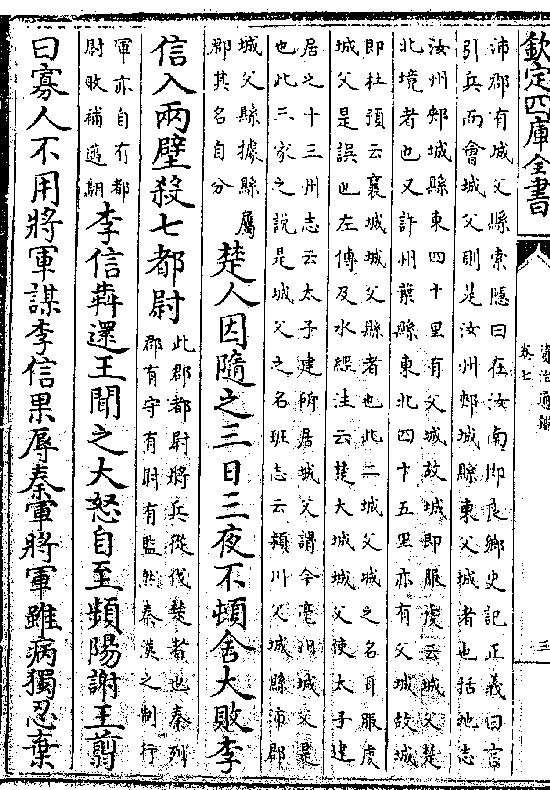 欽定四庫全書
資治通鑑
卷七
三
沛郡有城父縣索隱曰在汝南即應鄉史記正義曰言
引兵而會城父則是汝州郟城縣東父城者也括地志
汝州郟城縣東四十里有父城故城即服虔云城父楚
北境者也又許州葉縣東北四十五里亦有父城故城
即杜預云襄城城父縣者也此二城父城之名耳服虔
城父是誤也左傳及水經注云楚大城城父使太子建
居之十三州志云太子建所居城父謂今亳州城父是
也此三家之說是城父之名班志云潁川父城縣沛郡
城父縣據縣屬
郡其名自分
楚人因隨之三日三夜不頓舍大敗李
信入兩壁殺七都尉
此郡都尉將兵從伐楚者也秦列
郡有守有尉有監然秦漢之制行
軍亦自有都
尉敗補邁翻
李信犇還王聞之大怒自至頻陽謝王翦
曰寡人不用將軍謀李信果辱秦軍將軍雖病獨忍棄